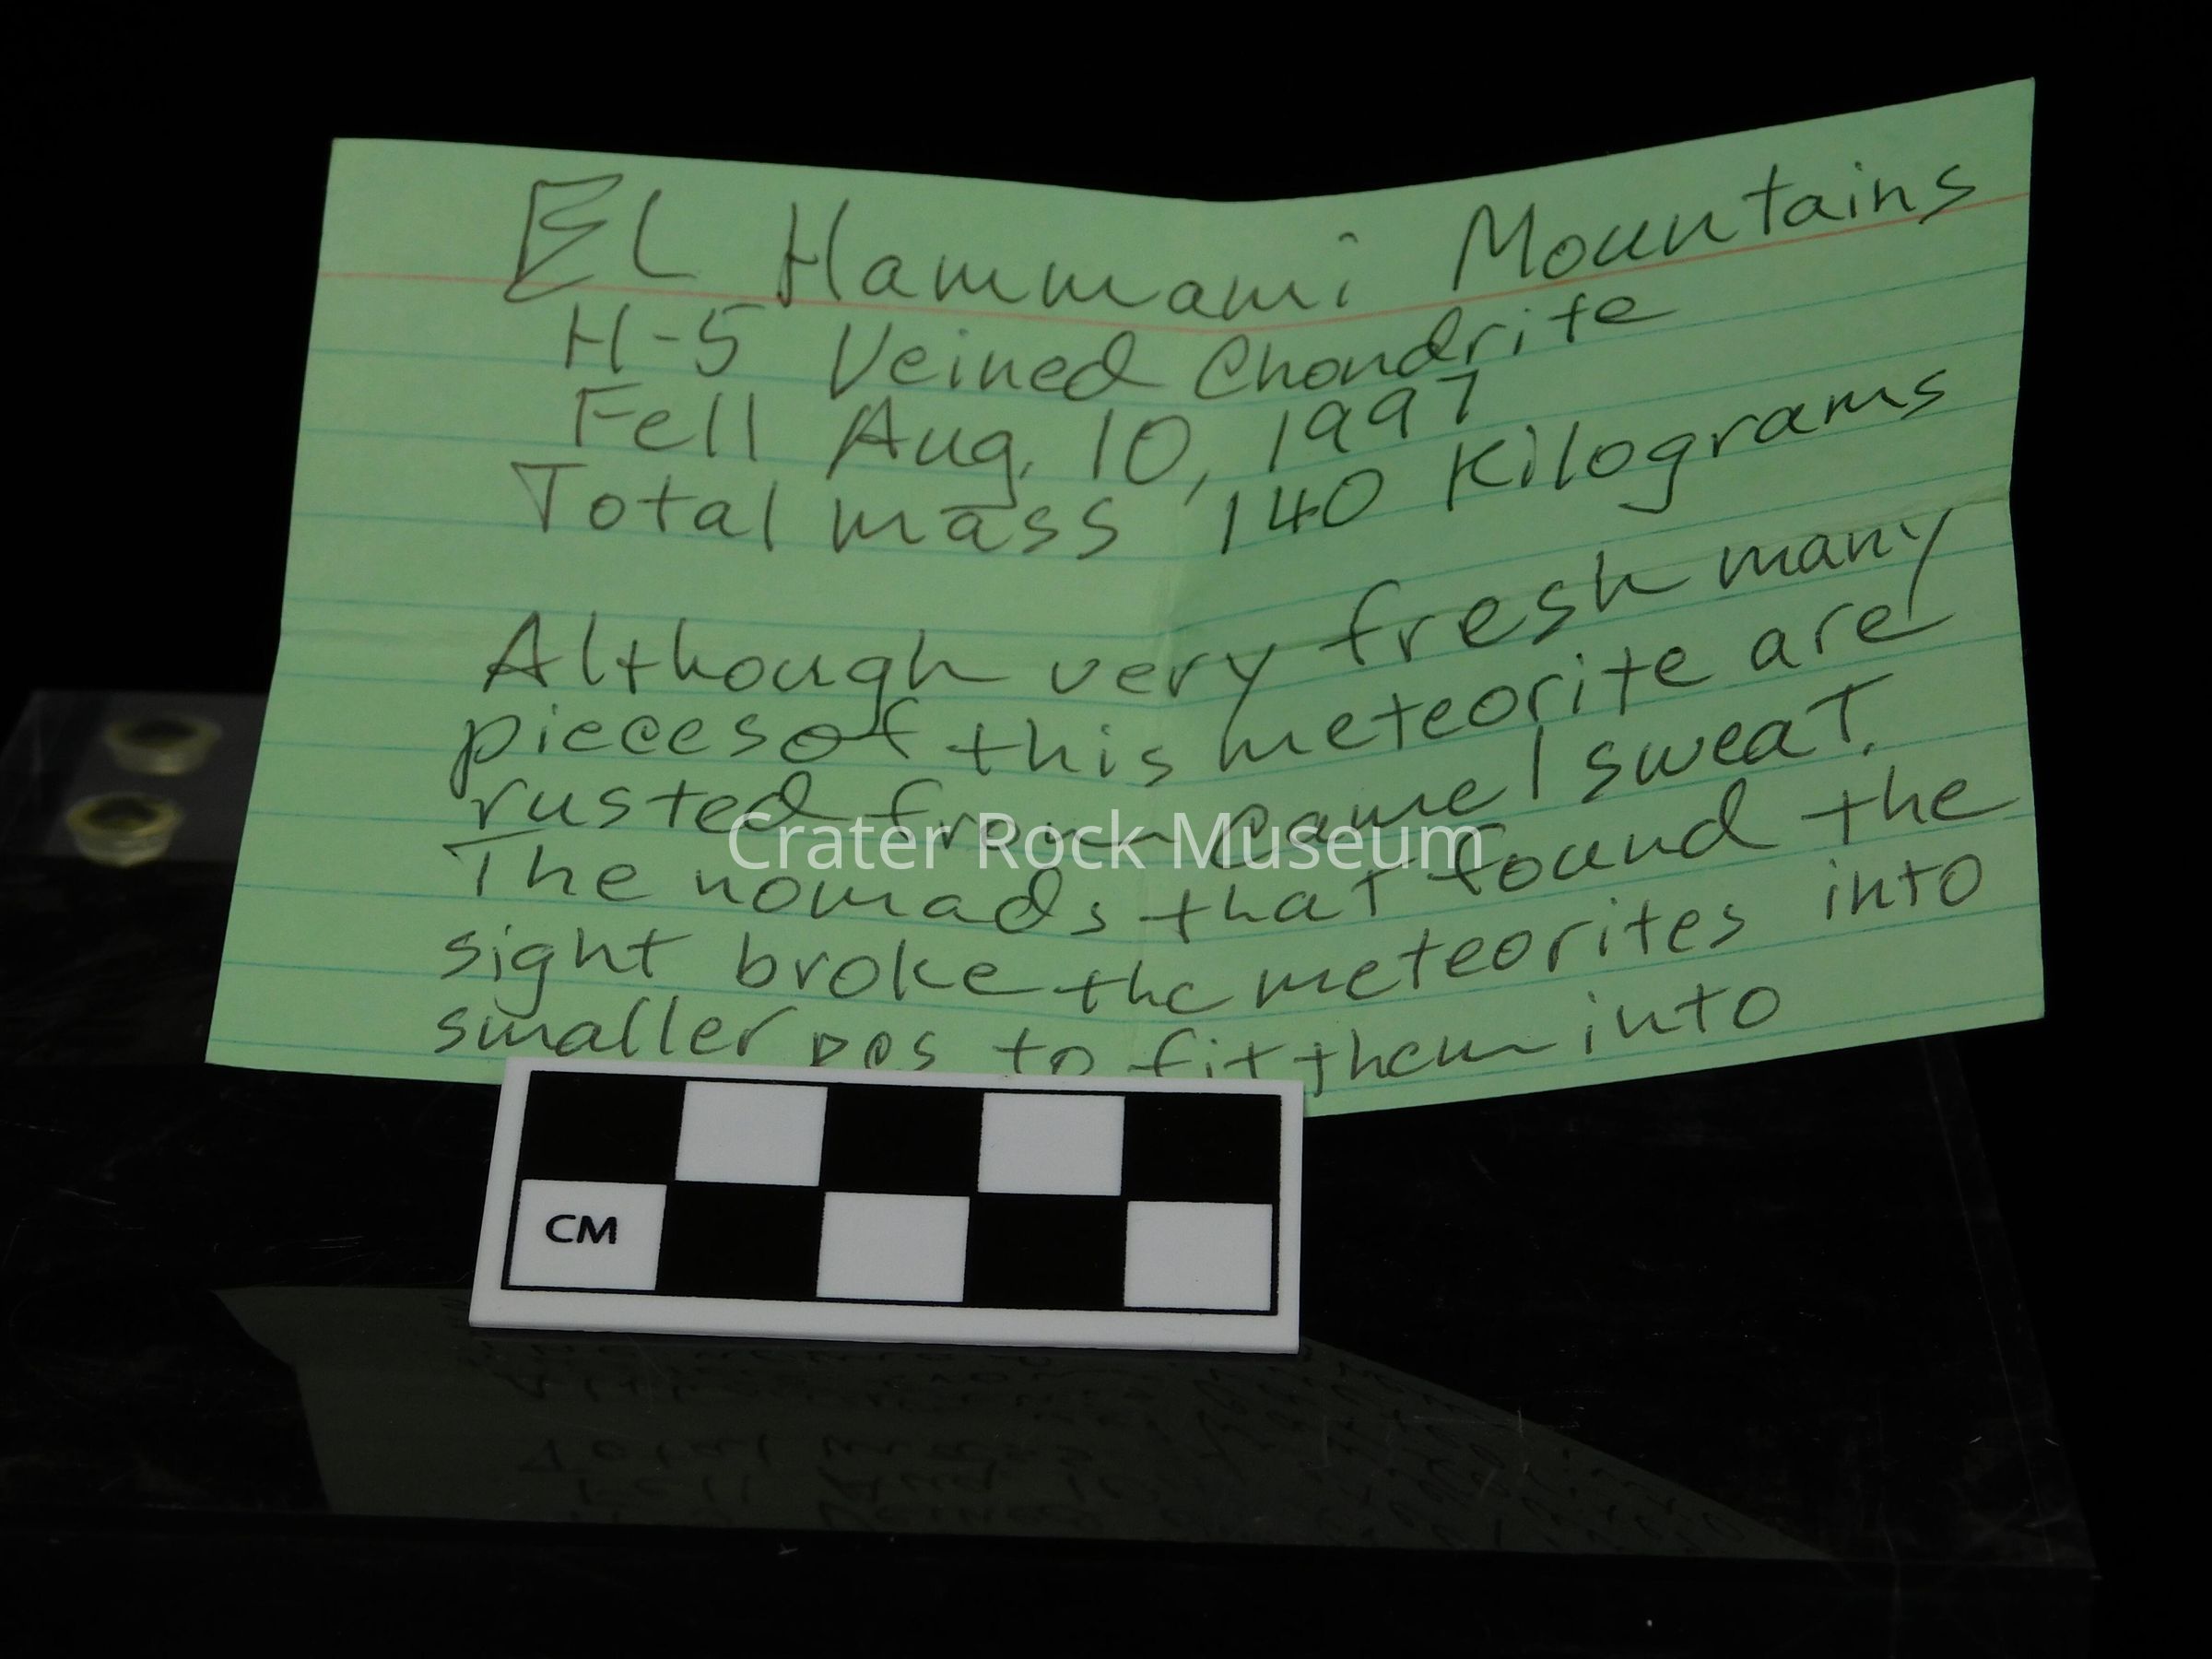 El Hammami Mountains
H-5 Veined Chondrite
Fell Aug. 10, 1997
Total mass 140 Kilograms
Although very fresh many
pieces of this meteorite are
rusted from Camel sweat.
The nomads that found the
sight broke the meteorites into
smaller pcs to fit them into
Crater Rock Museum
CM